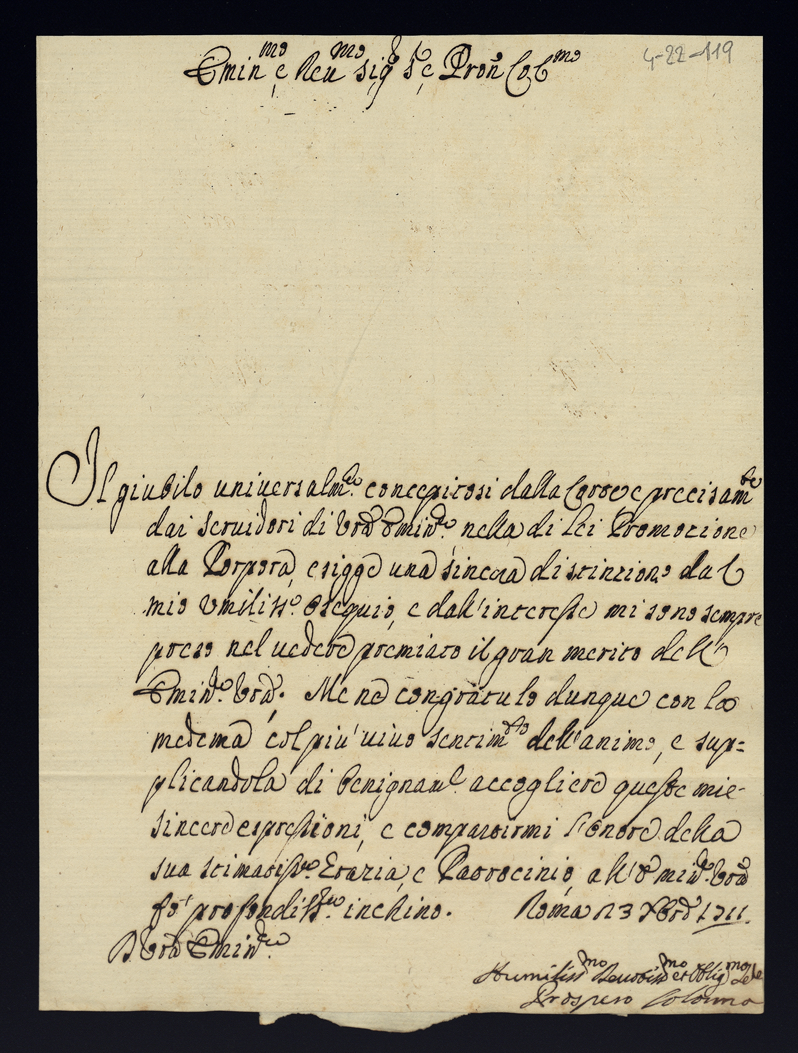 4-22-119
Emin.mo e Reu.mo sig.r S.e e Pron Col.mo
Il giubilo uniuersalm.te concepitosi dalla Corte e precisam.te
dai seruidori di Vra Emin.za nella di lei Promozione
alla Porpora, esigge una sincera distinzione dal
mio umiliss.o ossequio, e dall'interesse mi sono sempre
preso nel uedere premiato il gran merito dell'
Emin.a Vra. Me ne congratulo dunque con la
medema col più uiuo sentim.to dell'animo, e sup=
plicandola di benignam.e accogliere queste mie
sincere espressioni, e compartirmi l'onore della
sua stimatiss.a Grazia, e Patrocinio, all'Emin.a Vra
fò profondiss.o inchino. Roma 13 Xbre 1711.
D Vra Emin.za
Humiliss.mo Deuotiss.mo et Oblig.mo Se.re
Prospero Colonna